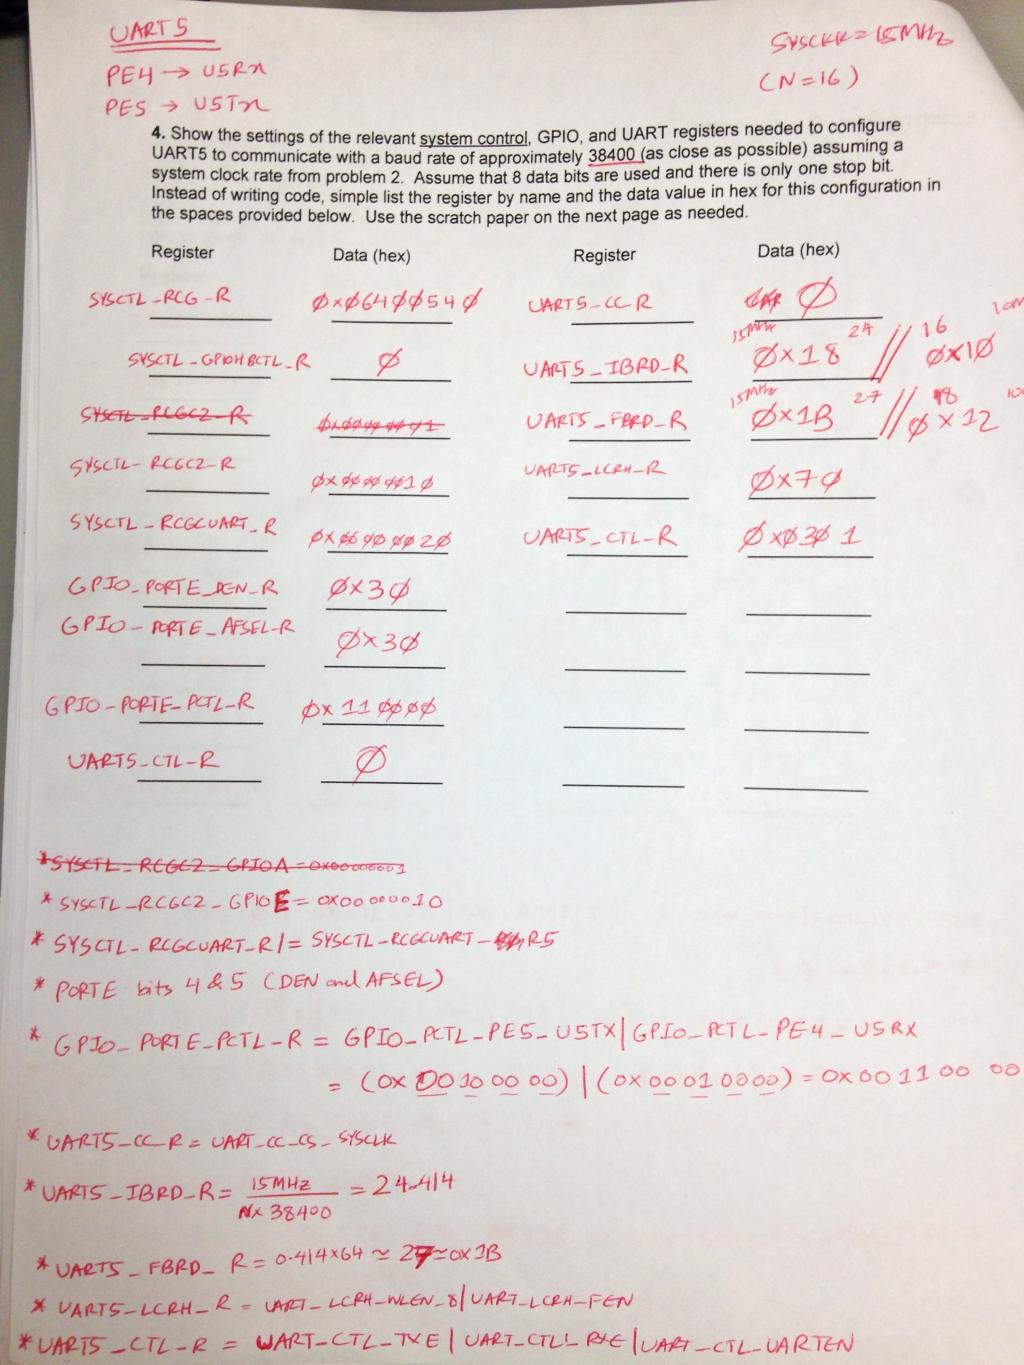 UART5
SYSCLK = 15MHz
PE4 → U5Rx
(N=16)
PE5 → U5Tx
4. Show the settings of the relevant system control, GPIO, and UART registers needed to configure
UART5 to communicate with a baud rate of approximately 38400 (as close as possible) assuming a
system clock rate from problem 2. Assume that 8 data bits are used and there is only one stop bit.
Instead of writing code, simple list the register by name and the data value in hex for this configuration in
the spaces provided below. Use the scratch paper on the next page as needed.
Register Data (hex) Register Data (hex)
SYSCTL_RCG_R 0x06400540 UART5_CC_R 0
15MHz 24 16
SYSCTL_GPIOHBCTL_R 0 UART5_IBRD_R 0x18 // 0x10
15MHz 27 18
SYSCTL_RCGC2_R 0x00000001 UART5_FBRD_R 0x1B // 0x12
SYSCTL_RCGC2_R 0x00000010 UART5_LCRH_R 0x70
SYSCTL_RCGCUART_R 0x00000020 UART5_CTL_R 0x0301
GPIO_PORTE_DEN_R 0x30
GPIO_PORTE_AFSEL_R 0x30
GPIO_PORTE_PCTL_R 0x110000
UART5_CTL_R 0
* SYSCTL_RCGC2_GPIOA = 0x00000001
* SYSCTL_RCGC2_GPIOE = 0x00000010
* SYSCTL_RCGCUART_R |= SYSCTL_RCGCUART_R5
* PORTE bits 4 & 5 (DEN and AFSEL)
* GPIO_PORTE_PCTL_R = GPIO_PCTL_PE5_U5TX | GPIO_PCTL_PE4_U5RX
= (0x 00 10 00 00) | (0x 00 01 00 00) = 0x 00 11 00 00
* UART5_CC_R = UART_CC_CS_SYSCLK
* UART5_IBRD_R = 15MHz / N x 38400 = 24.414
* UART5_FBRD_R = 0.414x64 ≃ 27 ≃ 0x1B
* UART5_LCRH_R = UART_LCRH_WLEN_8 | UART_LCRH_FEN
* UART5_CTL_R = UART_CTL_TXE | UART_CTL_RXE | UART_CTL_UARTEN